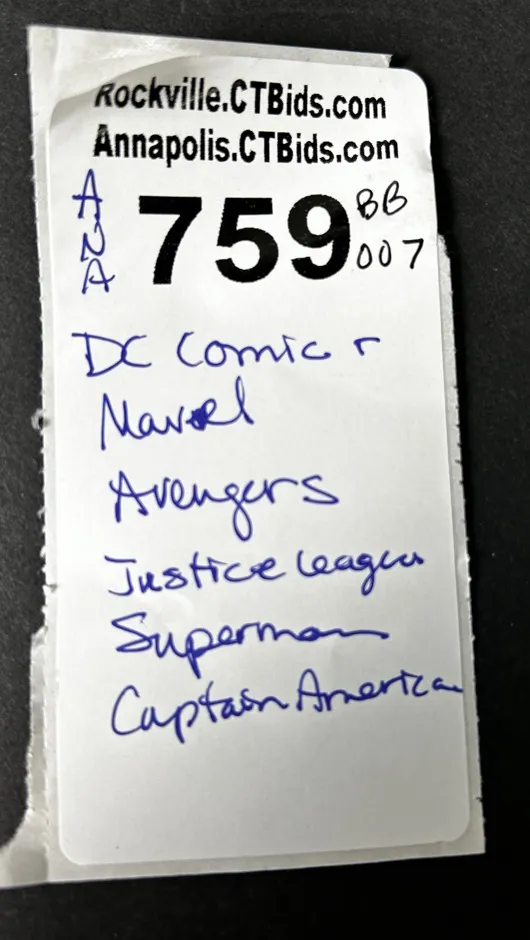 Rockville.CTBids.com
Annapolis.CTBids.com
ANA 759 BB 007
DC Comic r
Marvel
Avengers
Justice League
Superman
Captain America